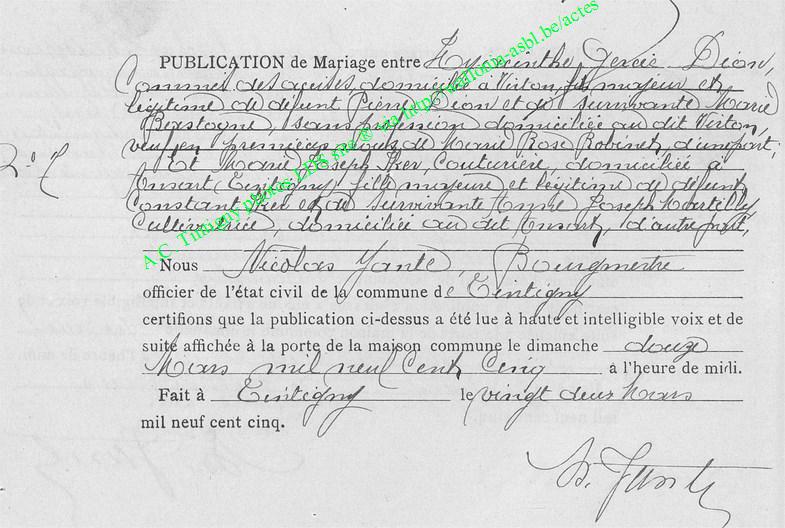 PUBLICATION de Mariage entre Hyacinthe Dion,
Commis des accises, domicilié à Virton, fils majeur et
légitime de défunt Pierre Dion et de survivante Marie
Bastogne, sans profession domiciliée au dit Virton,
veuf en premières noces de Marie Rose Robinet, d'une part,
Et Marie Joseph Iker, Couturière, domiciliée à
Ansart (Tintigny) fille majeure et légitime de défunt
Constant Iker et de survivante Anne Joseph
Cultivatrice, domiciliée au dit Ansart, d'autre part,
Nous Nicolas , Bourgmestre
officier de l'état civil de la commune de Tintigny
certifions que la publication ci-dessus a été lue à haute et intelligible voix et de
suite affichée à la porte de la maison commune le dimanche douze
Mars mil neuf Cent Cinq à l'heure de midi.
Fait à Tintigny le vingt deux Mars
mil neuf cent cinq.